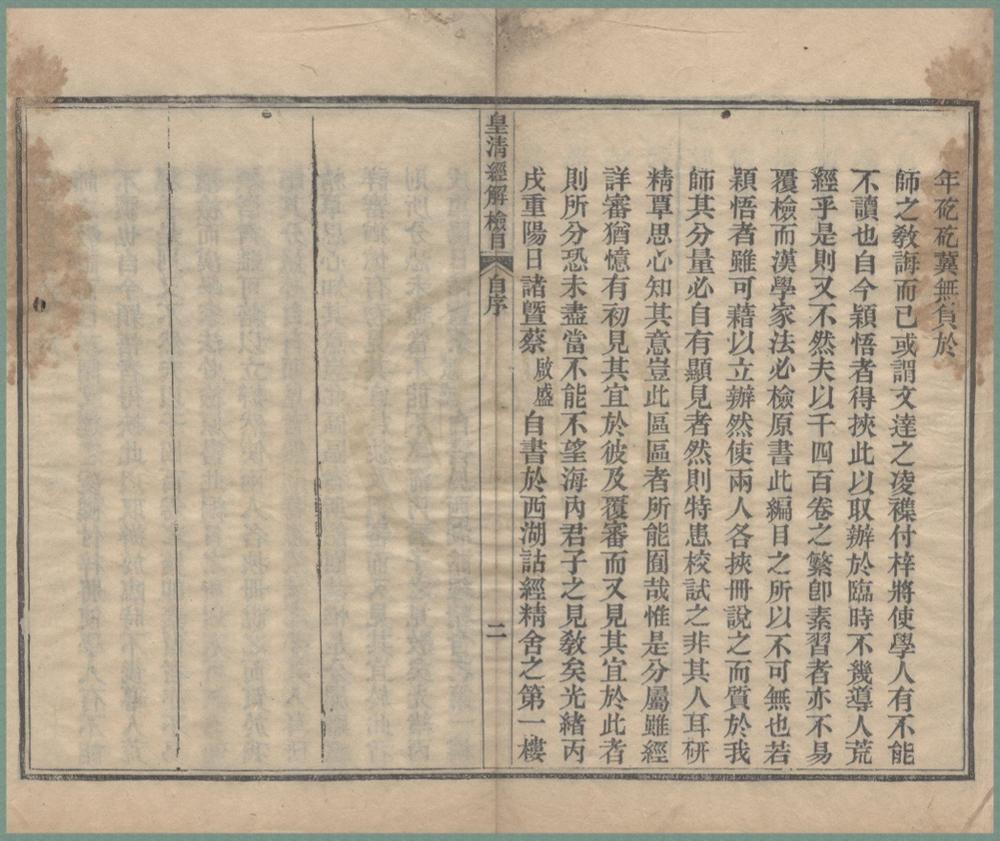 年矻矻冀無負於
師之教誨而已或謂文達之凌襍付梓將使學人有不能
不讀也自今穎悟者得挾此以取辦於臨時不幾導人荒
經乎是則又不然夫以千四百卷之繁卽素習者亦不易
覆檢而漢學家法必檢原書此編目之所以不可無也若
穎悟者雖可藉以立辦然使兩人各挾冊說之而質於我
師其分量必自有顯見者然則特患校試之非其人耳研
精覃思心知其意豈此區區者所能囿哉惟是分屬雖經
詳審猶憶有初見其宜於彼及覆審而又見其宜於此者
則所分恐未盡當不能不望海內君子之見教矣光緒丙
戌重陽日諸暨蔡啟盛自書於西湖詁經精舍之第一樓
皇清經解檢目 自序 二